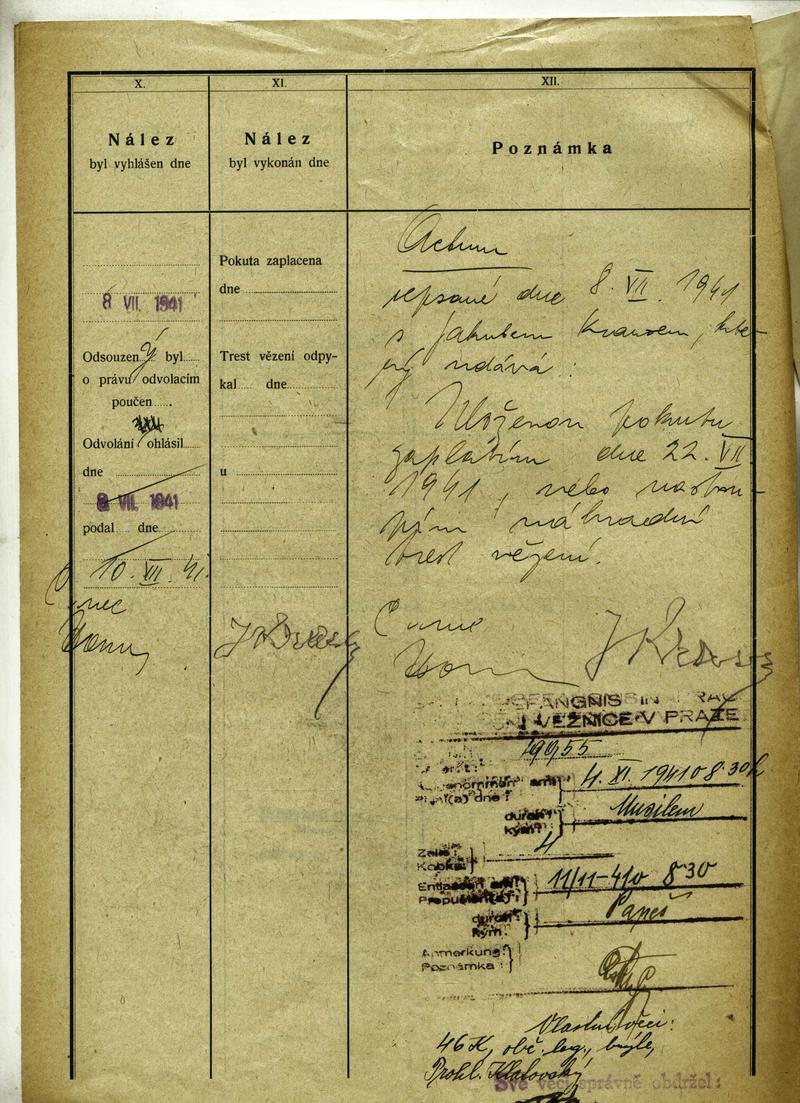 X.
Nález
byl vyhlášen dne
8 VII. 1941
Odsouzený byl
o právu odvolacím
poučen
Odvolání ohlásil
dne
8 VII. 1941
podal dne
10. VII. 41.
XI.
Nález
byl vykonán dne
Pokuta zaplacena
dne
Trest vězení odpy-
kal dne
u
XII.
Poznámka
Actum
sepsané dne 8. VII. 1941
s Jakubem Krausem, kte-
rý udává:
Uloženou pokutu
zaplatím dne 22. VII
1941, nebo nastou-
pím náhradní
trest vězení.
GEFÄNGNIS IN PRAG
VĚZNICE V PRAZE
19955
4. XI. 1941 o 8.30 h
Přijat(a) dne:
durch:
kým:
Musilem
Zelle:
Kobka:
4
Entlassen am:
Propuštěn(a):
11/11-41 o 8 30
durch:
kým:
Papeš
Anmerkung:
Poznámka:
Vlastní věci:
46 K, obč. leg., brýle,
Prohl. Klatovský
Své věci správně obdržel: